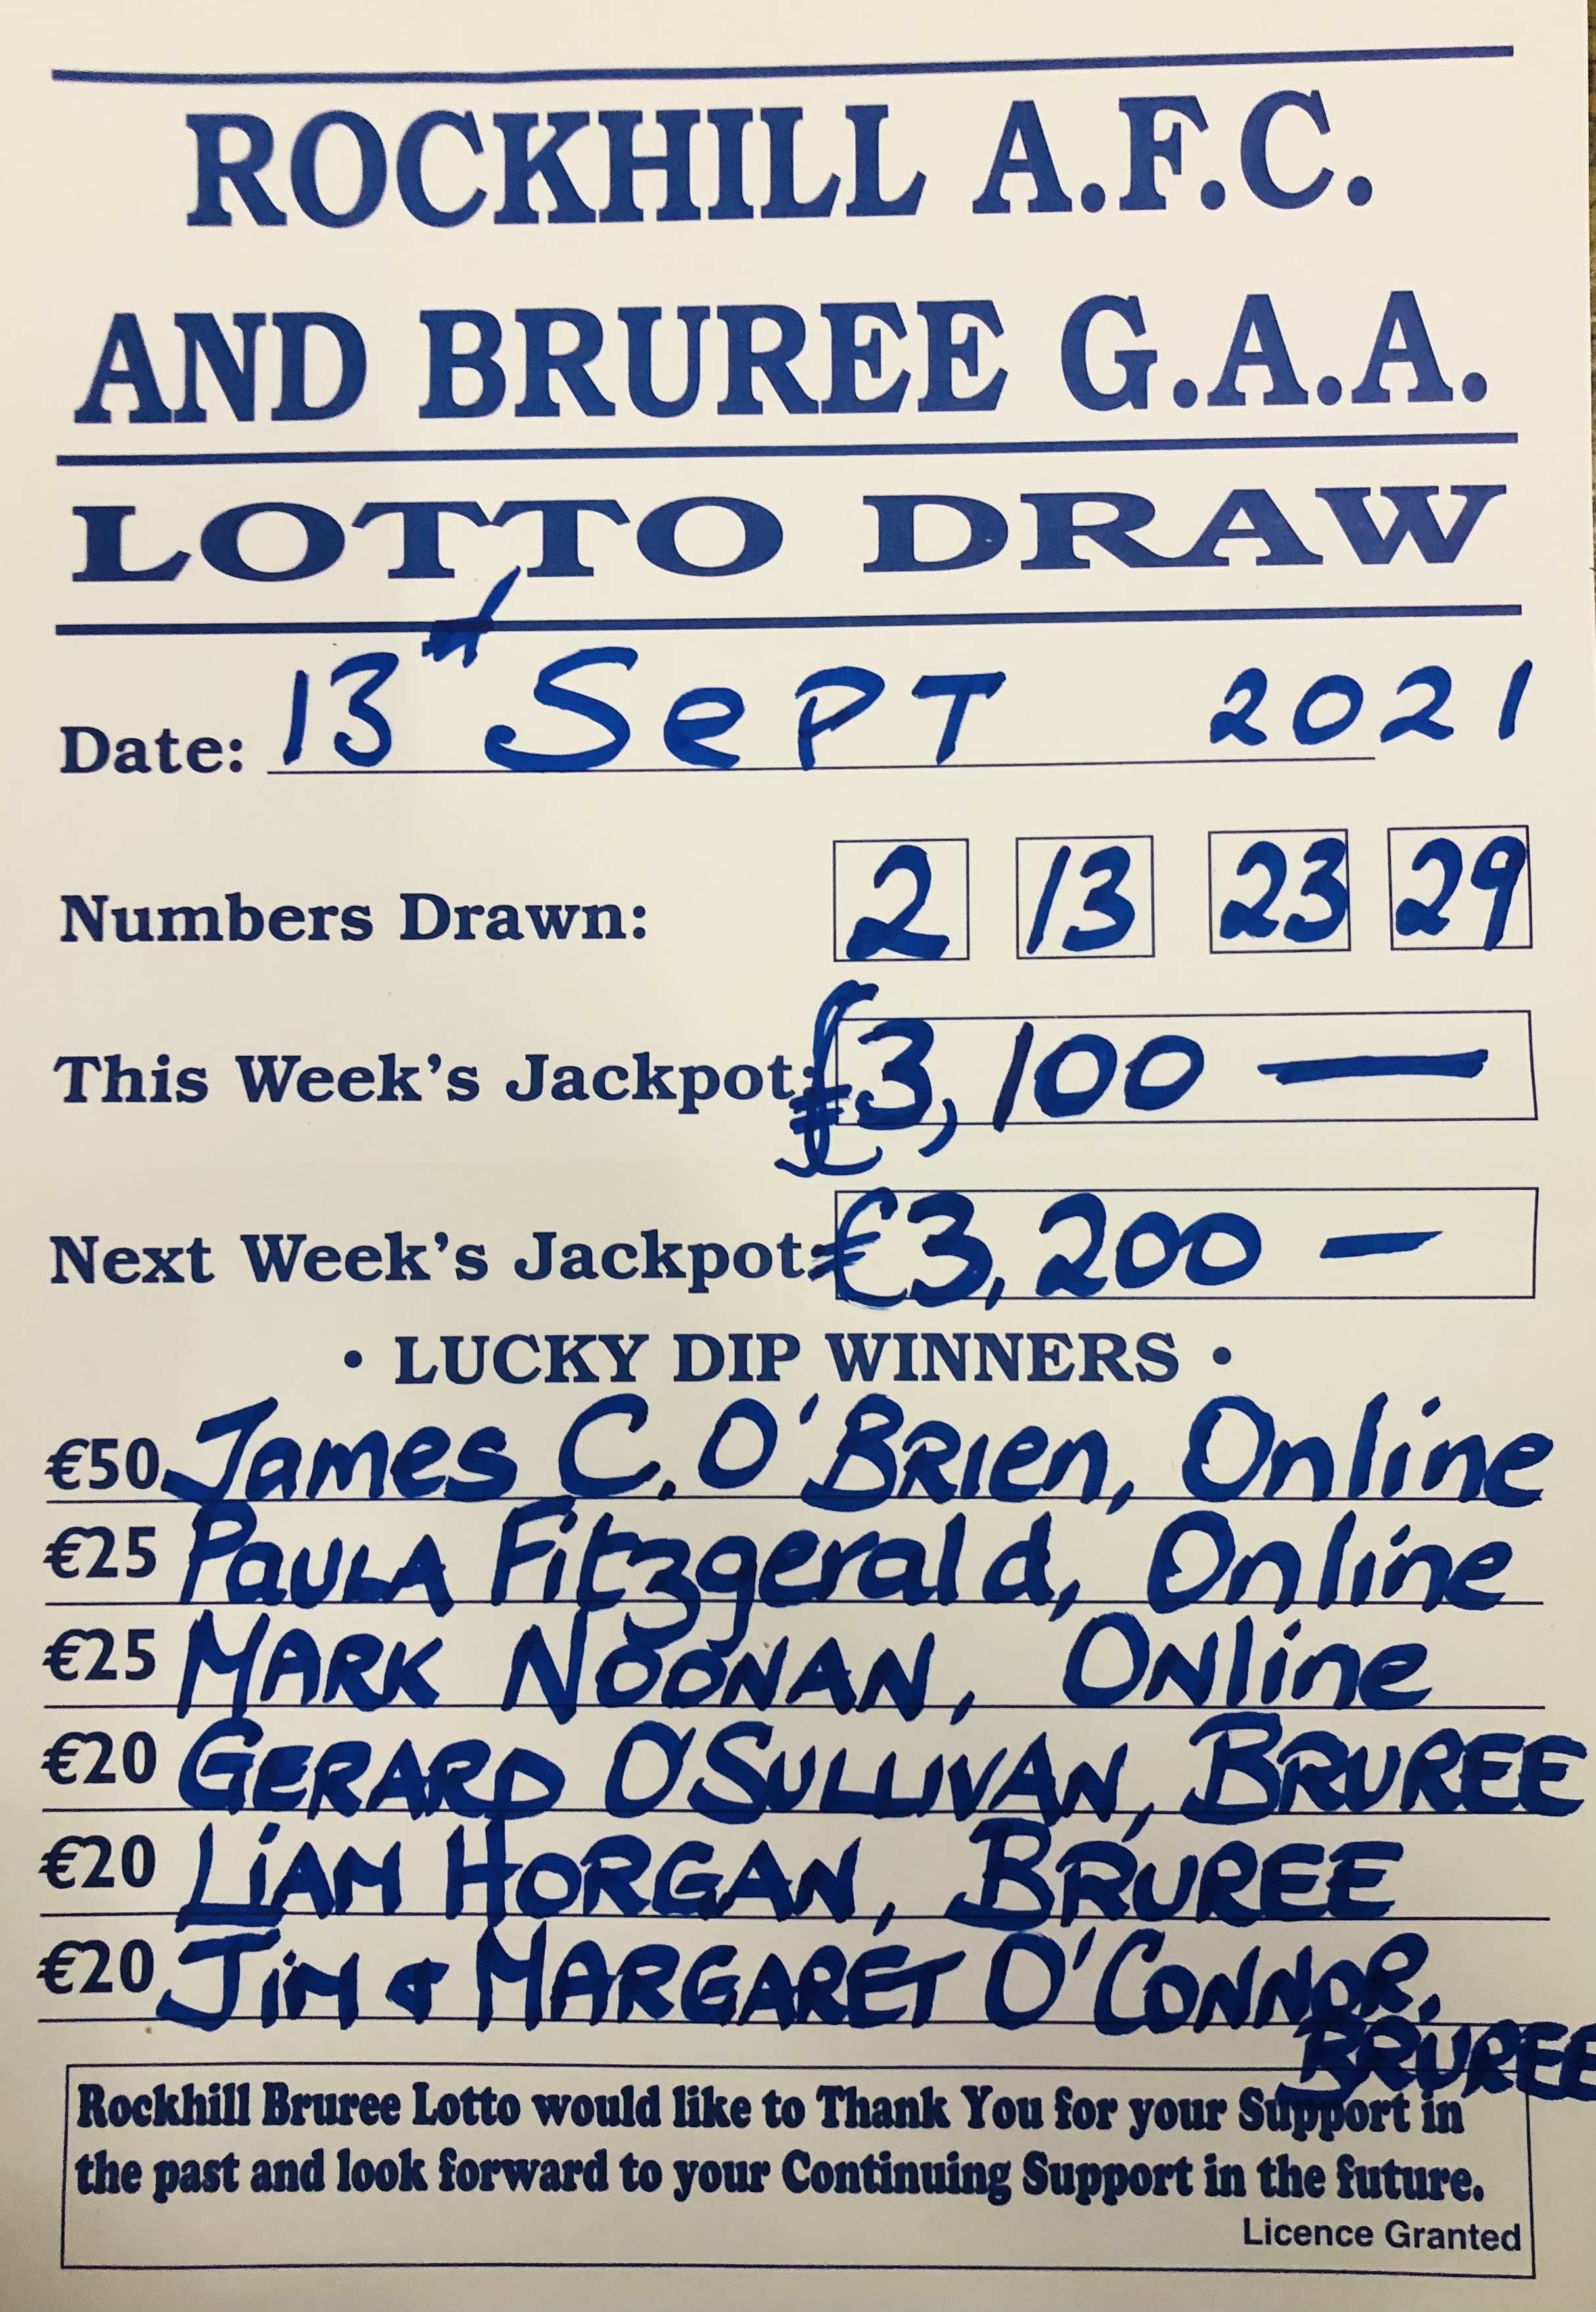 ROCKHILL A.F.C.
AND BRUREE G.A.A.
LOTTO DRAW
Date: 13th Sept 2021
Numbers Drawn: 2 13 23 29
This Week's Jackpot: £3,100 —
Next Week's Jackpot: €3,200 —
• LUCKY DIP WINNERS •
€50 James C. O'Brien, Online
€25 Paula Fitzgerald, Online
€25 Mark Noonan, Online
€20 GERARD O'SULLIVAN, BRUREE
€20 LiAM HORGAN, BRUREE
€20 JiM & MARGARET O'CONNOR,
BRUREE
Rockhill Bruree Lotto would like to Thank You for your Support in
the past and look forward to your Continuing Support in the future.
Licence Granted